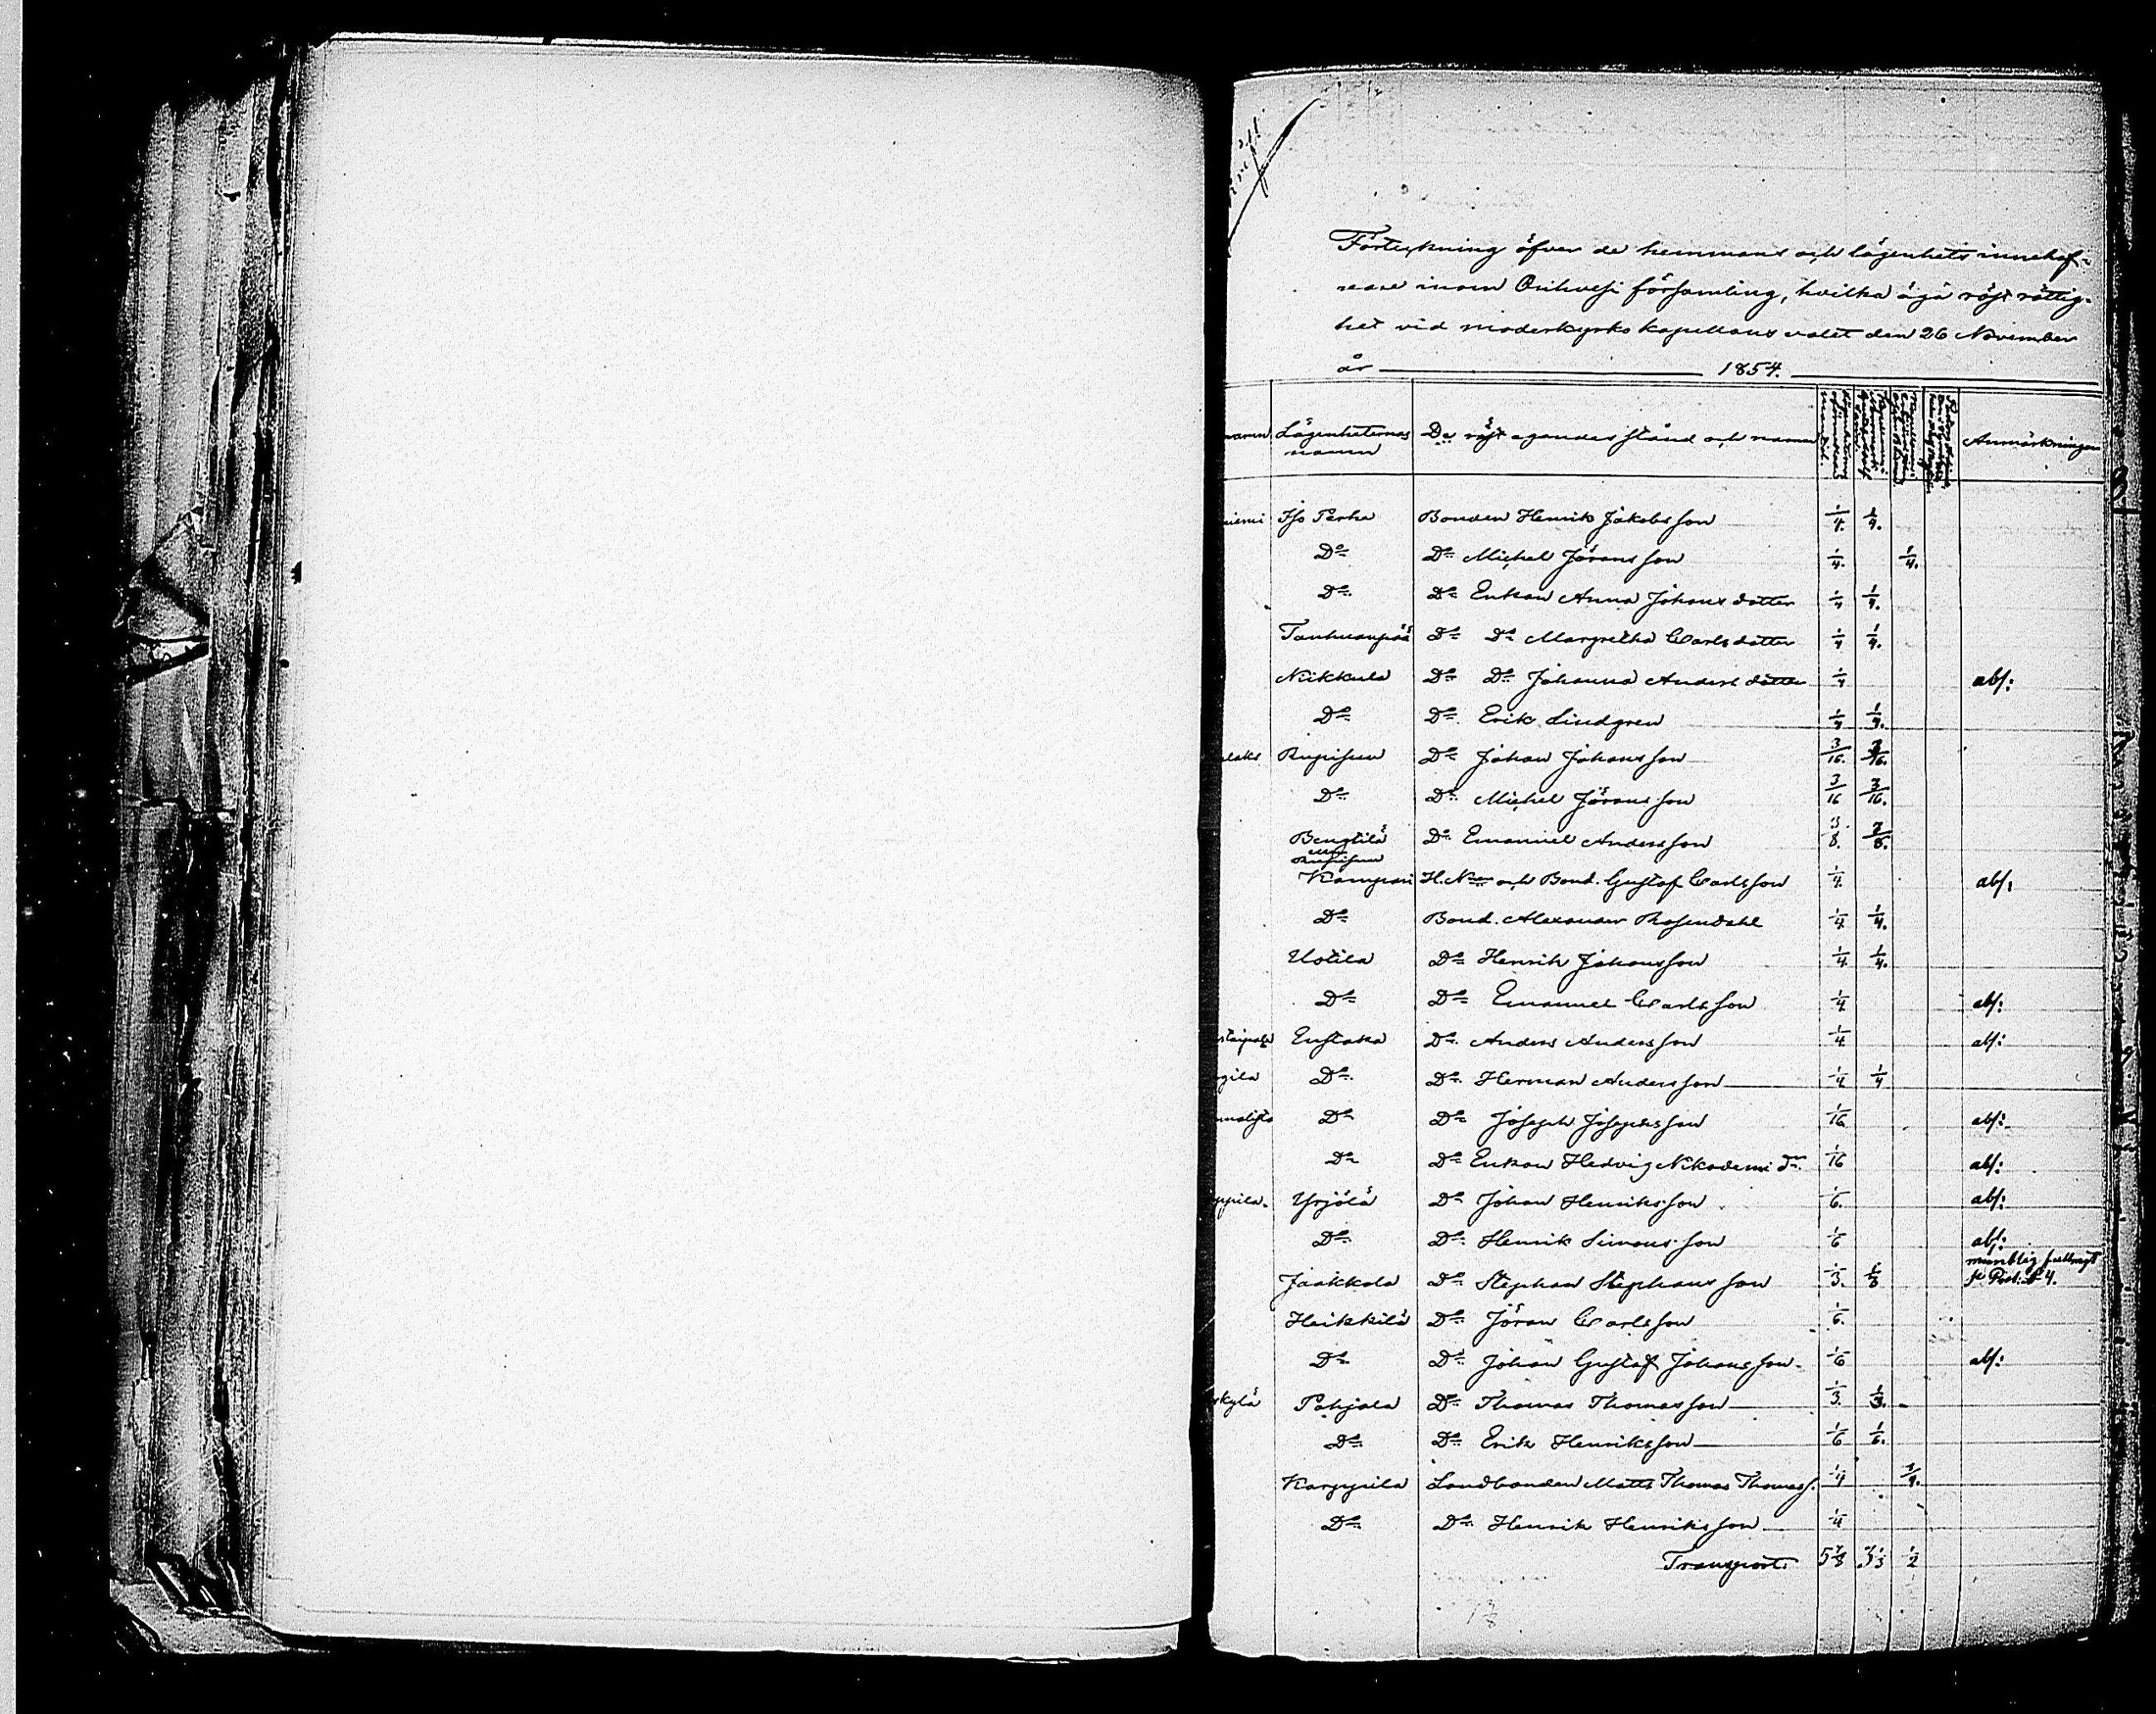 Förteckning öfver de hemmans och lägenhets innehaf-
vare inom Orihvesi församling, hvilka äga röst rättig-
het vid moderkyrko kapellans valet den 26 November
år 1854.
namn Lägenheternas namn De röst egandes stånd och namn Anmärkningar
niemi Iso Perha Bonden Henrik Jakobsson 1/4. 1/4.
Do Do Michel Jöransson 1/4. 1/4.
Do Do Enkan Anna Johansdotter 1/4 1/4.
Tanhuanpää Do Do Margretha Carlsdotter 1/4 1/4.
Nikkula Do Do Johanna Andersdotter 1/4 abs:
Do Do Erik Lindgren 1/4 1/4.
laks Rupisen Do Johan Johansson 3/16. 3/16.
Do Do Michel Jöransson 3/16 3/16.
Bengtilä Do Emanuel Andersson 3/8. 3/8.
eller Rupisen
Kampari H. Nm och Bond. Gustaf Carlsson 1/4. abs:
Do Bond. Alexander Rosendahl 1/4 1/4.
Uotila Do Henrik Johansson 1/4 1/4.
Do Do Emanuel Carlsson 1/4 abs:
staipale Eustaka Do Anders Andersson 1/4 abs:
gila Do Do Herman Andersson 1/4 1/4
Do Do Joseph Josephsson 1/16 abs:
Do Do Enkan Hedvig Nikodemi dr. 1/16 abs:
ppila. Yrjölä Do Johan Henriksson 1/6. abs:
Do Do Henrik Simonsson 1/6 abs:
Jaakkola Do Stephan Stephansson 1/3. 1/3 muntlig fullmagt
se Prot. § 4.
Heikkilä Do Jöran Carlsson 1/6.
Do Do Johan Gustaf Johansson 1/6 abs:
kylä Pohjola Do Thomas Thomasson 1/3. 1/3.
Do Do Erik Henriksson 1/6 1/6.
Karppila Landbonden Matts Thomas Thomass. 1/4 1/4.
Do Do Henrik Henriksson 1/4
Transport. 1/2